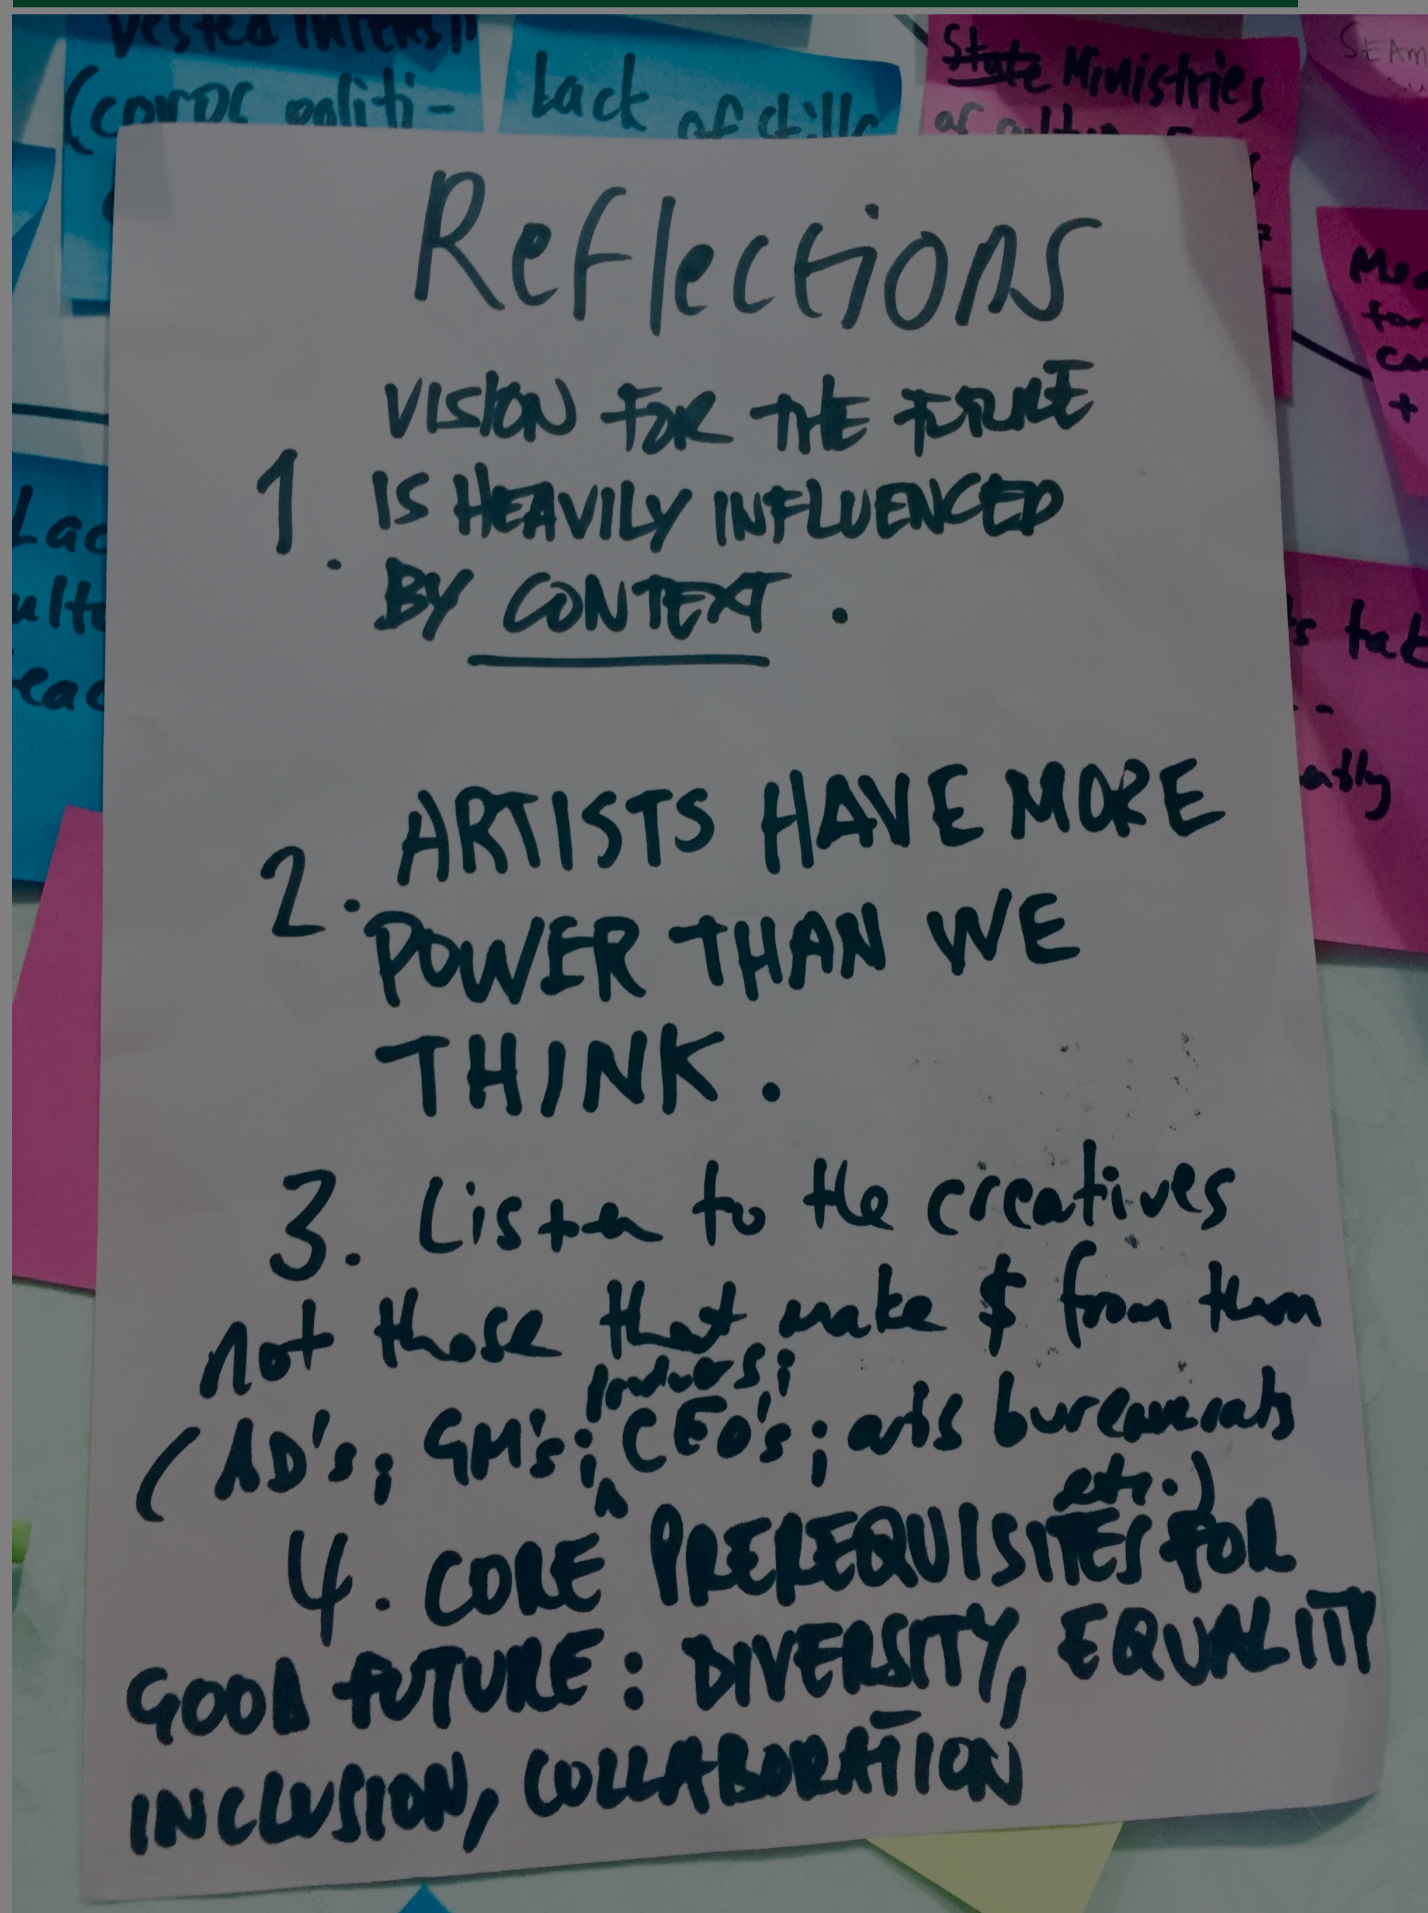 Vested interest
(corp politi-
Lack of skills
State Ministries
of cultur
SEAM
Su
Me
for
Ca
+
Lac
ultu
eac
s tak
--
Reflections
1. VISION FOR THE FUTURE
IS HEAVILY INFLUENCED
BY CONTEXT.
2. ARTISTS HAVE MORE
POWER THAN WE
THINK.
3. Listen to the creatives
not those that make $ from them
producers;
(AD's; GM's; CEO's; arts bureaucrats
etc.)
4. CORE PREREQUISITES FOR
GOOD FUTURE: DIVERSITY, EQUALITY
INCLUSION, COLLABORATION